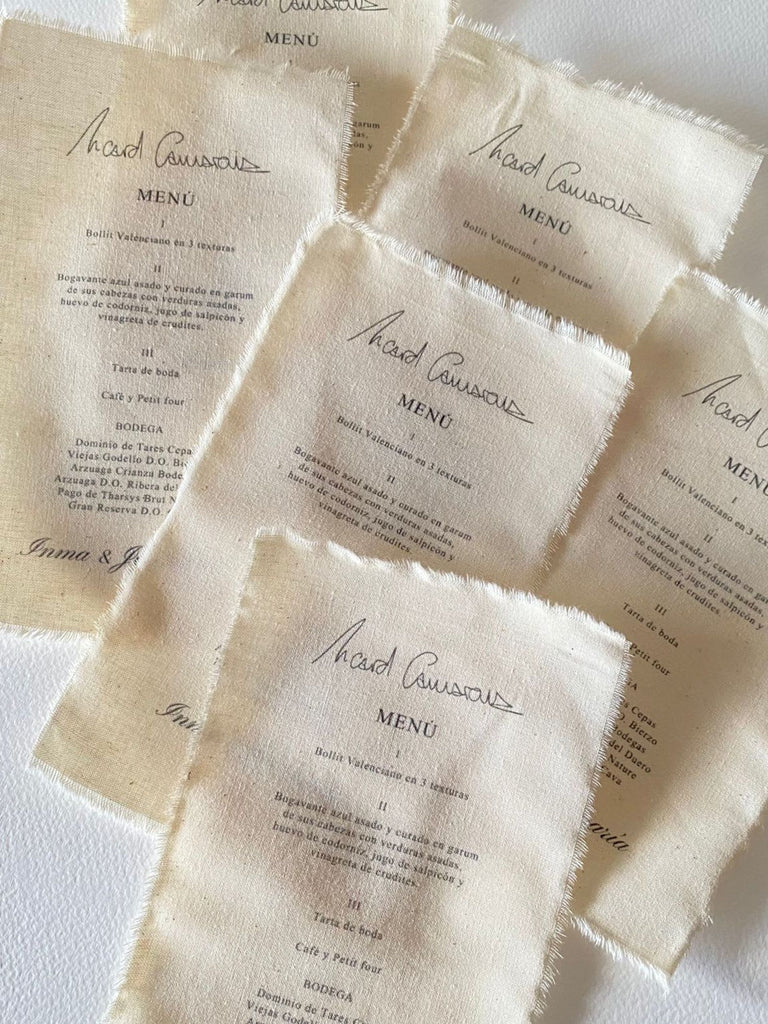 Ricard Camarena
MENÚ
garum
y
Ricard Camarena
MENÚ
I
Bollit Valenciano en 3 texturas
II
Bogavante azul asado y curado en garum
de sus cabezas con verduras asadas,
huevo de codorniz, jugo de salpicón y
vinagreta de crudites.
III
Tarta de boda
Café y Petit four
BODEGA
Dominio de Tares Cepa
Viejas Godello D.O. Bi
Arzuaga Crianza Bode
Arzuaga D.O. Ribera del
Pago de Tharsys Brut N
Gran Reserva D.O.
Inma & J
Ricard Camarena
MENÚ
I
Bollit Valenciano en 3 texturas
II
Ricard Camarena
MENÚ
I
Bollit Valenciano en 3 texturas
II
Bogavante azul asado y curado en garum
de sus cabezas con verduras asadas,
huevo de codorniz, jugo de salpicón y
vinagreta de crudites.
Inm
Ricard Cama
MENÚ
I
Bollit Valenciano en 3 tex
II
Bogavante azul asado y curado en gar
de sus cabezas con verduras asadas,
huevo de codorniz, jugo de salpicón y
vinagreta de crudites.
III
Tarta de boda
Petit four
GA
Tares Cepas
O. Bierzo
Bodegas
del Duero
Nature
Cava
aría
Ricard Camarena
MENÚ
I
Bollit Valenciano en 3 texturas
II
Bogavante azul asado y curado en garum
de sus cabezas con verduras asadas,
huevo de codorniz, jugo de salpicón y
vinagreta de crudites.
III
Tarta de boda
Café y Petit four
BODEGA
Dominio de Tares Cepas
Viejas Godello D.O. Bierzo
Arzuaga Crianza